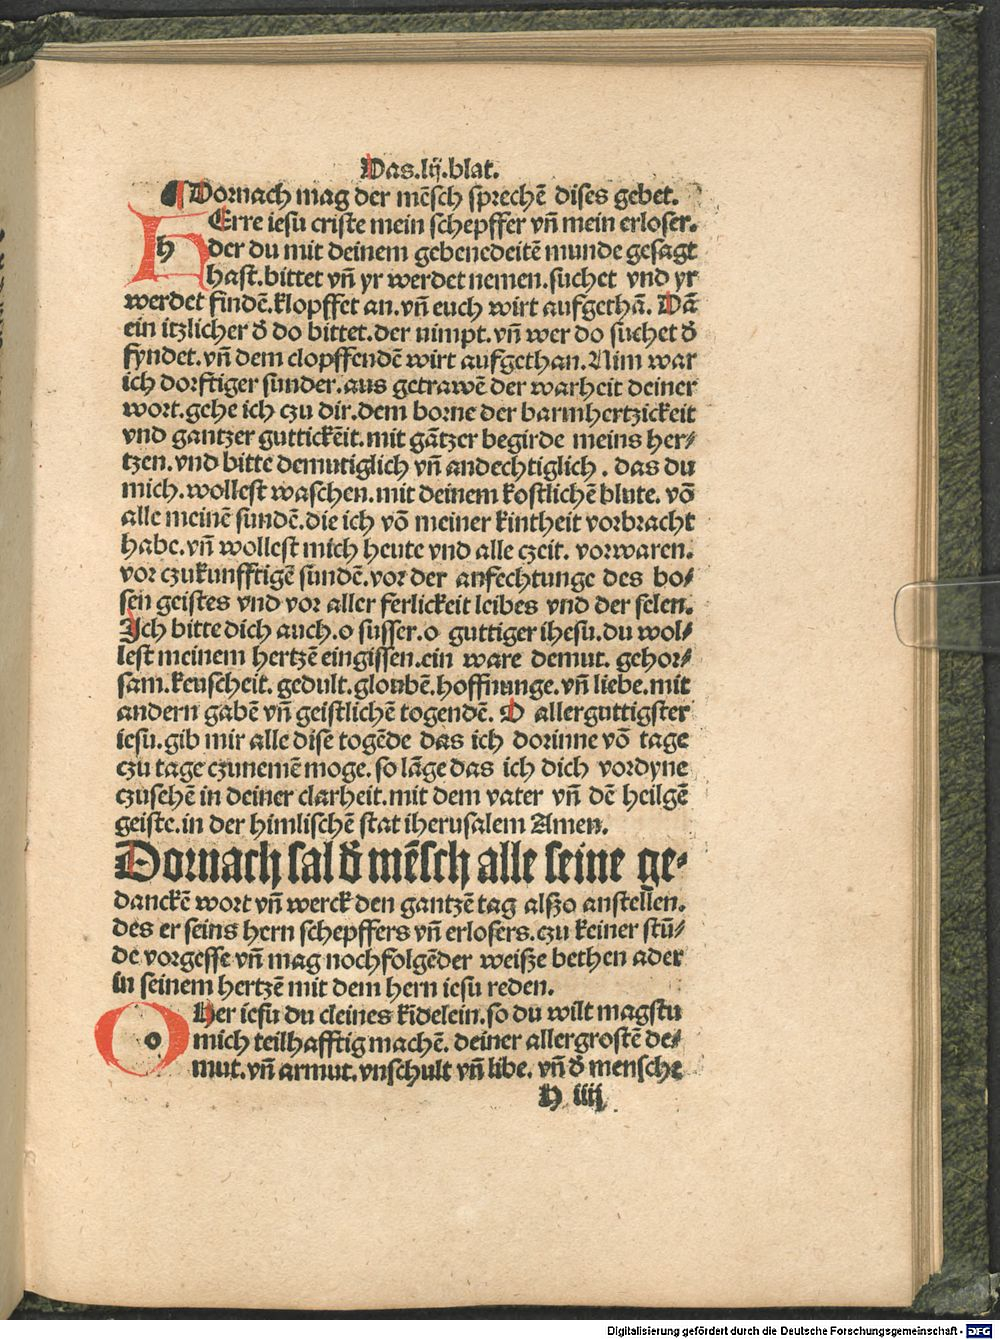 Das.lij.blat.
¶ Dornach mag der mēsch sprechē dises gebet.
HErre iesu criste mein schepffer vn̄ mein erloser.
der du mit deinem gebenedeitē munde gesagt
hast. bittet vn̄ yr werdet nemen. suchet vnd yr
werdet findē. klopffet an. vn̄ euch wirt aufgethā. Dā
ein itzlicher d̄ do bittet. der nimpt. vn̄ wer do suchet d̄
fyndet. vn̄ dem clopffendē wirt aufgethan. Nim war
ich dorftiger sunder. aus getrawē der warheit deiner
wort. gehe ich czu dir. dem borne der barmhertzickeit
vnd gantzer guttickēit. mit gātzer begirde meins her⸗
tzen. vnd bitte demutiglich vn̄ andechtiglich. das du
mich. wollest waschen. mit deinem kostlichē blute. vō
alle meinē sundē. die ich vō meiner kintheit vorbracht
habe. vn̄ wollest mich heute vnd alle czeit. vorwaren.
vor czukunfftigē sundē. vor der anfechtunge des bo⸗
sen geistes vnd vor aller ferlickeit leibes vnd der selen.
Ich bitte dich auch. o susser. o guttiger ihesu. du wol⸗
lest meinem hertzē eingissen. ein ware demut. gehor⸗
sam. keuscheit. gedult. gloubē. hoffnunge. vn̄ liebe. mit
andern gabē vn̄ geistlichē togendē. O allerguttigster
iesu. gib mir alle dise togēde das ich dorinne vō tage
czu tage czunemē moge. so lāge das ich dich vordyne
czusehē in deiner clarheit. mit dem vater vn̄ dē heilgē
geiste. in der himlischē stat iherusalem Amen.
Dornach sal d̄ mēsch alle seine ge⸗
danckē wort vn̄ werck den gantzē tag alßo anstellen.
des er seins hern schepffers vn̄ erlosers. czu keiner stū⸗
de vorgesse vn̄ mag nochfolgēder weiße bethen ader
in seinem hertzē mit dem hern iesu reden.
O Her iesu du cleines kīdelein. so du wilt magstu
mich teilhafftig machē. deiner allergrostē de⸗
mut. vn̄ armut. vnschult vn̄ libe. vn̄ d̄ mensche
h iiij
Digitalisierung gefördert durch die Deutsche Forschungsgemeinschaft - DFG